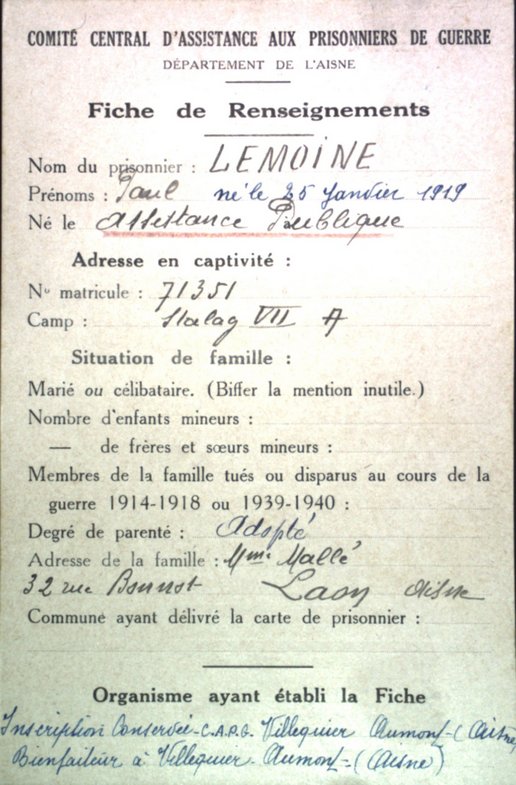 COMITÉ CENTRAL D'ASSISTANCE AUX PRISONNIERS DE GUERRE
DÉPARTEMENT DE L'AISNE
Fiche de Renseignements
Nom du prisonnier : LEMOINE
Prénoms : Paul né le 25 Janvier 1919
Né le Assistance Publique
Adresse en captivité :
No matricule : 71351
Camp : Stalag VII A
Situation de famille :
Marié ou célibataire. (Biffer la mention inutile.)
Nombre d'enfants mineurs :
— de frères et sœurs mineurs :
Membres de la famille tués ou disparus au cours de la
guerre 1914-1918 ou 1939-1940 :
Degré de parenté : Adopté
Adresse de la famille : Mme Mallé
32 rue Bonnot Laon Aisne
Commune ayant délivré la carte de prisonnier :
Organisme ayant établi la Fiche
Inscription Conservée - C.A.P.G. Villequier Aumont - (Aisne)
Bienfaiteur à Villequier - Aumont = (Aisne)